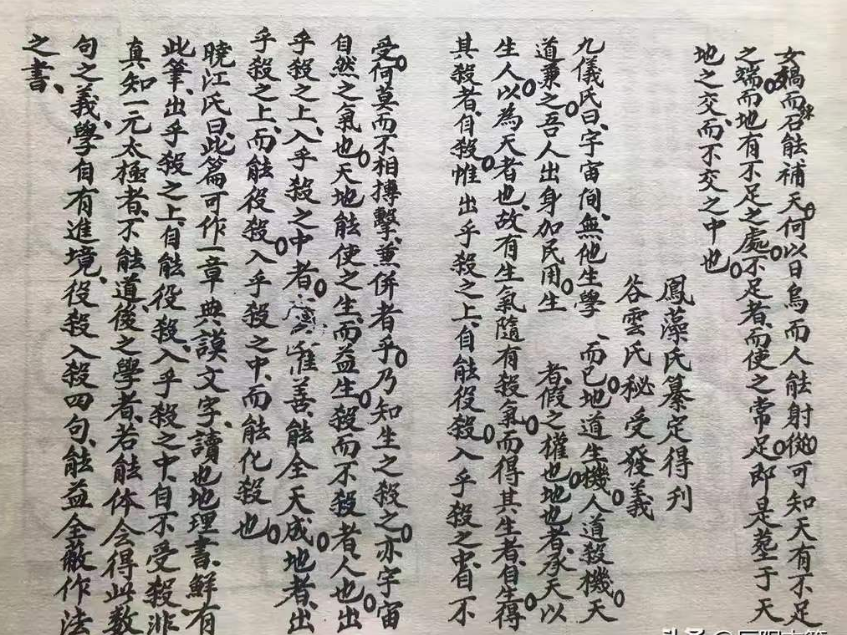 女媧而石能補天何以日烏而人能射從可知天有不足
之端而地有不足之處不足者而使之常足即是塟于天
地之交而不交之中也
鳳藻氏纂定得刋
谷雲氏秘受發義
九儀氏曰宇宙间無他生學 而已地道生機人道殺機天
道兼之吾人出身加民用生 者假之權也地也者承天以
生人以為天者也故有生氣隨有殺氣而得其生者自生得
其殺者自殺惟出乎殺之上自能役殺入乎殺之中自不
受何莫而不相搏擊兼併者乎乃知生之殺之亦宇宙
自然之氣也天地能使之生而益生殺而不殺者人也出
乎殺之上入乎殺之中者 惟善能全天成地者出
乎殺之上而能役殺入乎殺之中而能化殺也
曉江氏曰此篇可作一章典謨文字讀也地理書鮮有
此筆出乎殺之上自能役殺入乎殺之中自不受殺非
真知一元太極者不能道後之學者若能体会得此数
句之義學自有進境役殺入殺四句能益全敝作法
之書